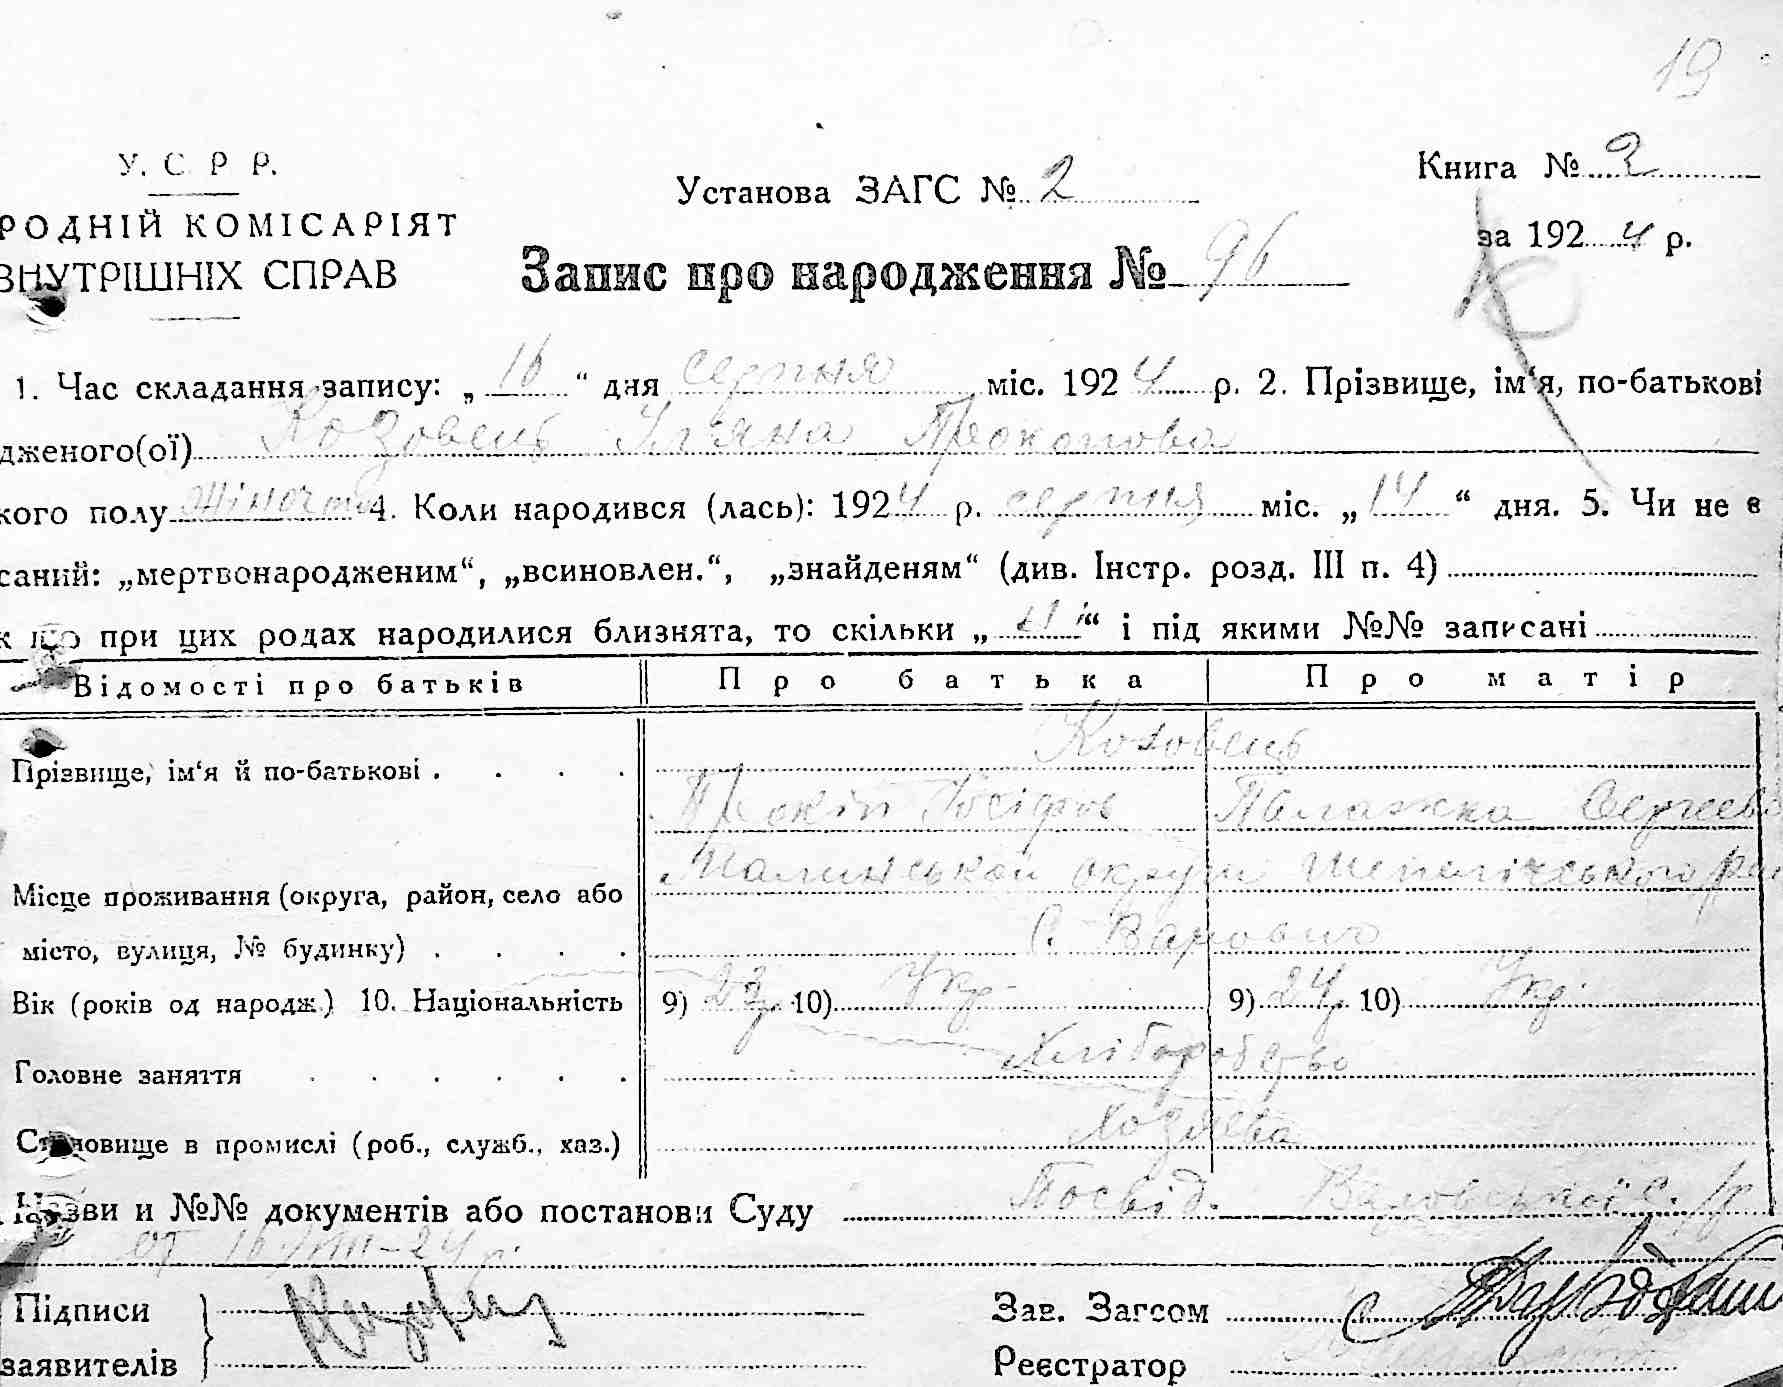 19
У. С. Р. Р.
Установа ЗАГС № 2
Книга № 2
РОДНІЙ КОМІСАРІЯТ
за 1924 р.
ВНУТРІШНІХ СПРАВ
Запис про народження № 96
1. Час складання запису: „ 16 “ дня серпня міс. 1924 р. 2. Прізвище, ім‘я, по-батькові
дженого(ої) Козовець Ул‘яна Прокопова
кого полу жіноч 4. Коли народився (лась): 1924 р. серпня міс. „ 14 “ дня. 5. Чи не в
саний: „мертвонародженим“, „всиновлен.“, „знайденям“ (див. Інстр. розд. III п. 4)
при цих родах народилися близнята, то скільки „ ні “ і під якими №№ записані
Відомості про батьків Про батька Про матір
Козовець
Прізвище, ім‘я й по-батькові
Прокіп Йосіфов Палажка Сергеев
Малинської округи Шепелічського рай
Місце проживання (округа, район, село або
місто, вулиця, № будинку) с. Варовичі
Вік (років од народж.) 10. Національність 9) 23 р 10) Укр. 9) 24 р 10) Укр.
Головне заняття Хліборобство
Становище в промислі (роб., служб., хаз.) Хозяева
Назви и №№ документів або постанови Суду Посвід. с./р
от 16/VIII-24 р.
Підписи Зав. Загсом
заявителів Реєстратор